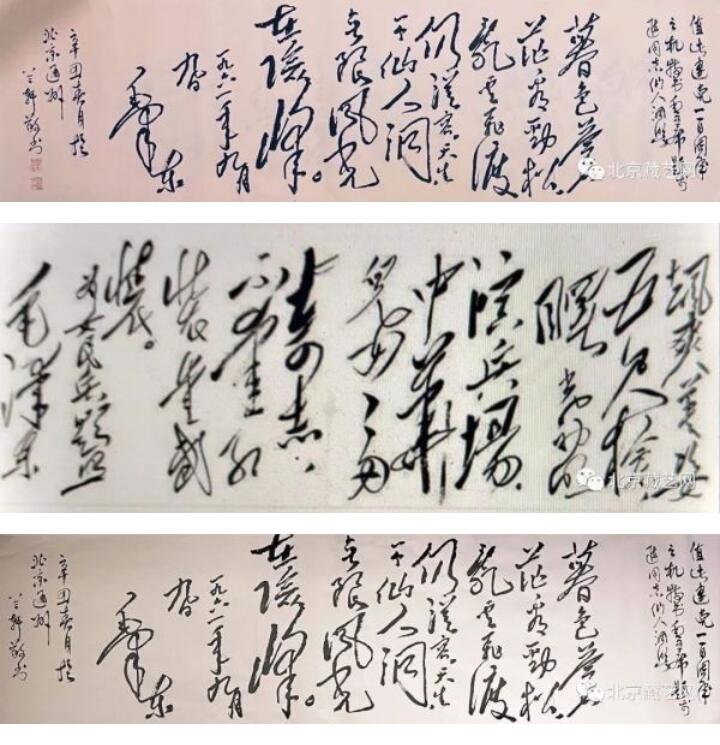 值此建党一百周年
之机特书毛主席题李
进同志仙人洞照
暮色苍
茫看劲松
乱云飞渡
仍从容天生
一个仙人洞
无限风光
在险峰。
一九六一年九月
九日
毛泽东
辛丑春月於
北京通州
兰轩敬书
北京藏艺网
飒爽英姿
五尺枪
曙光初照
演兵场
中华
儿女多
奇志
不爱红
装爱武
装。
为女民兵题照
毛泽东
北京藏艺网
值此建党一百周年
之机特书毛主席题李
进同志仙人洞照
暮色苍
茫看劲松
乱云飞渡
仍从容天生
一个仙人洞
无限风光
在险峰。
一九六一年九月
九日
毛泽东
辛丑春月於
北京通州
兰轩敬书
北京藏艺网